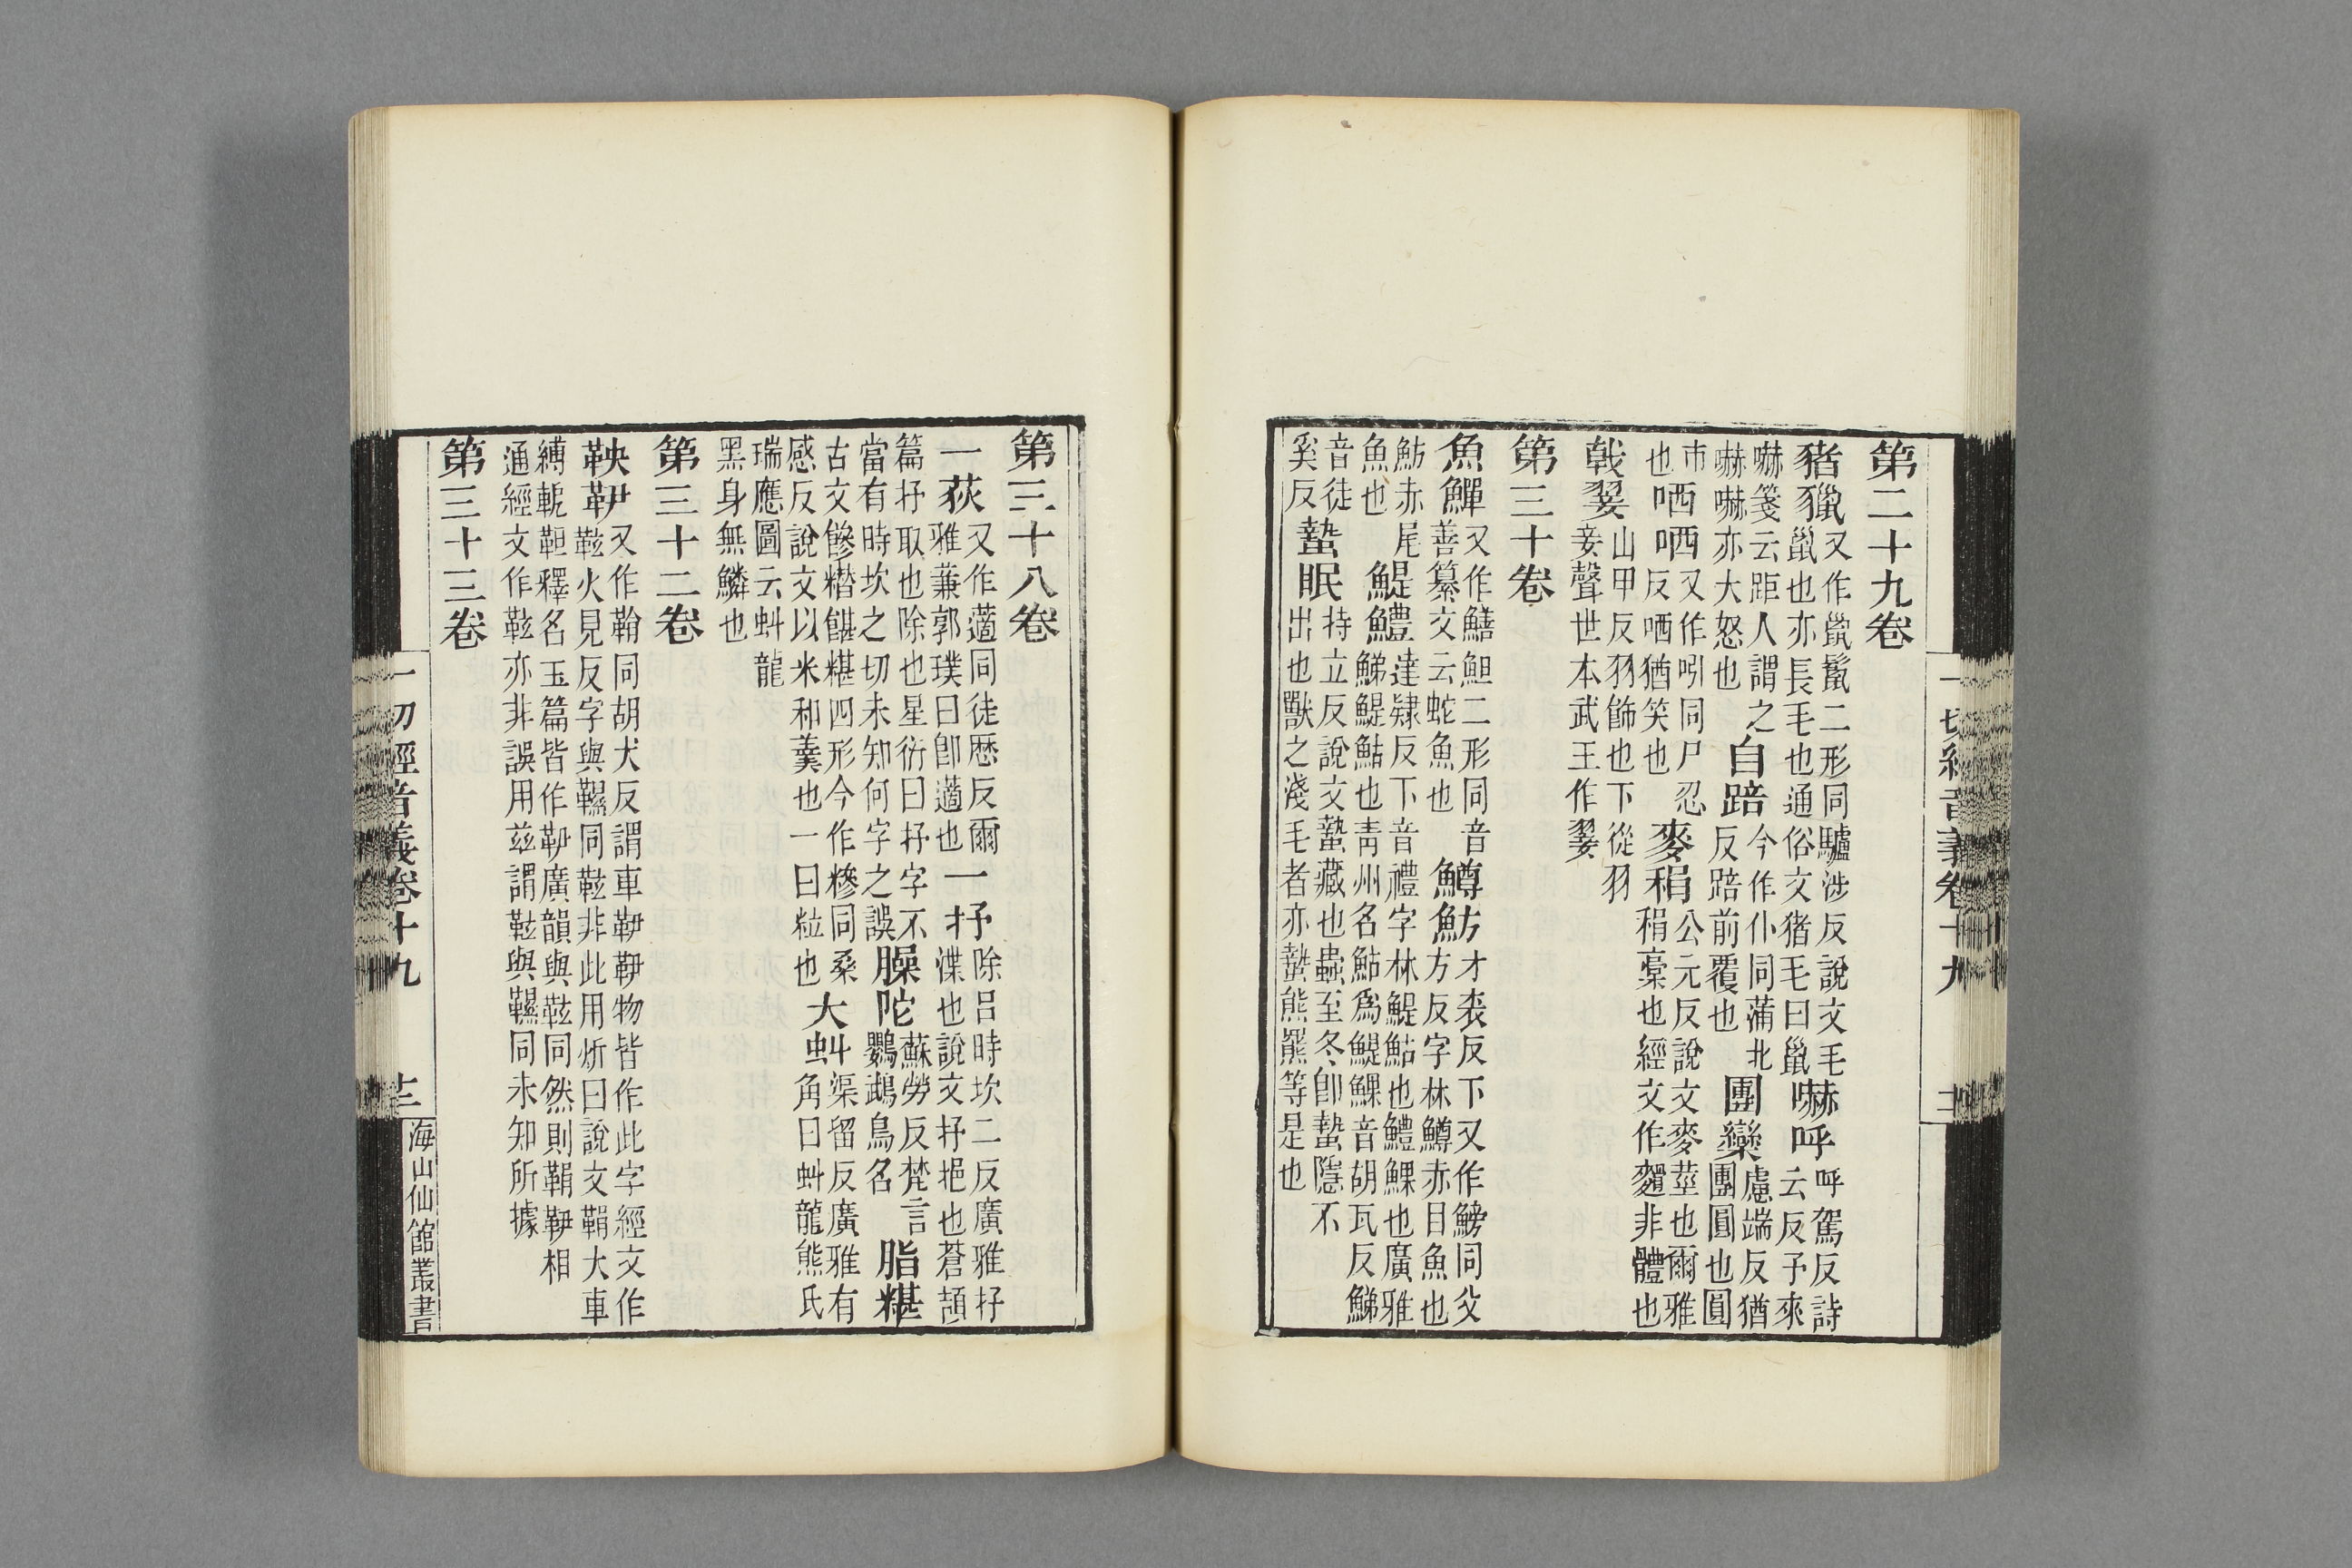 第二十九卷
豬獵又作氀鬣二形同驢涉反說文毛巤也亦長毛也通俗文豬毛曰巤嚇呼呼駕反詩云反予來
嚇箋云距人謂之嚇嚇亦大怒也自踣今作仆同蒲北反踣前覆也團欒慮端反猶團圓也圓
市也哂哂又作吲同尸忍反哂猶笑也麥䅌公元反說文麥莖也爾雅䅌稾也經文作麵非體也
戟翣山甲反羽飾也下從羽妾聲世本武王作翣
第三十卷
魚鱓又作鱔䱇二形同音善纂文云蛇魚也鱒魴才衮反下又作鰟同父方反字林鱒赤目魚也
魴赤尾魚也鯷鱧達隸反下音禮字林鯷鮎也鱧鯶也廣雅鮷鯷鮎也靑州名鮎爲鯷鯶音胡瓦反鮷
音徒奚反蟄眠持立反說文蟄藏也蟲至冬卽蟄隱不出也獸之淺毛者亦蟄熊羆等是也
一切經音義卷十九
第三十八卷
一荻又作藡同徒歷反爾雅蒹郭璞曰卽藡也一抒除呂時坎二反廣雅抒渫也說文抒挹也蒼頡
篇抒取也除也星衍曰抒字不當有時坎之切未知何字之誤臊陀蘇勞反梵言鸚鵡鳥名脂糂
古文糝糣糂四形今作糝同桑感反說文以米和羹也一曰粒也大虯渠留反廣雅有角曰虯龍熊氏
瑞應圖云虯龍黑身無鱗也
第三十二卷
鞅靷又作䩖同胡犬反謂車靷靷物皆作此字經文作鞃火見反字與韅同鞃非此用炘曰說文鞙大車
縛軛靼釋名玉篇皆作靷廣韻與鞃同然則鞙靷相通經文作鞃亦非誤用兹謂鞃與韅同未知所據
第三十三卷
一切經音義卷十九
海山仙館叢書